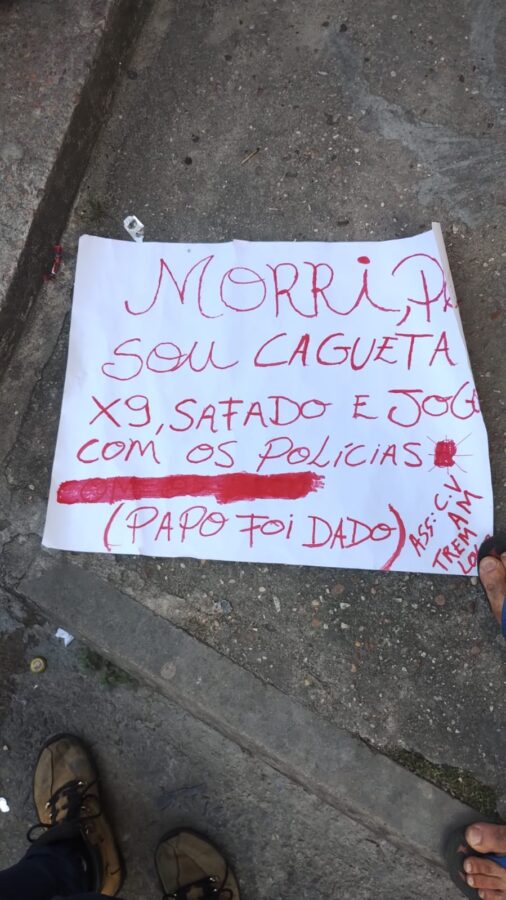 MORRi,
SOU CAGUETA
X9, SAFADO E JOGO
COM OS POLÍCIAS
(PAPO FOI DADO)
ASS: C.V
TREM AM